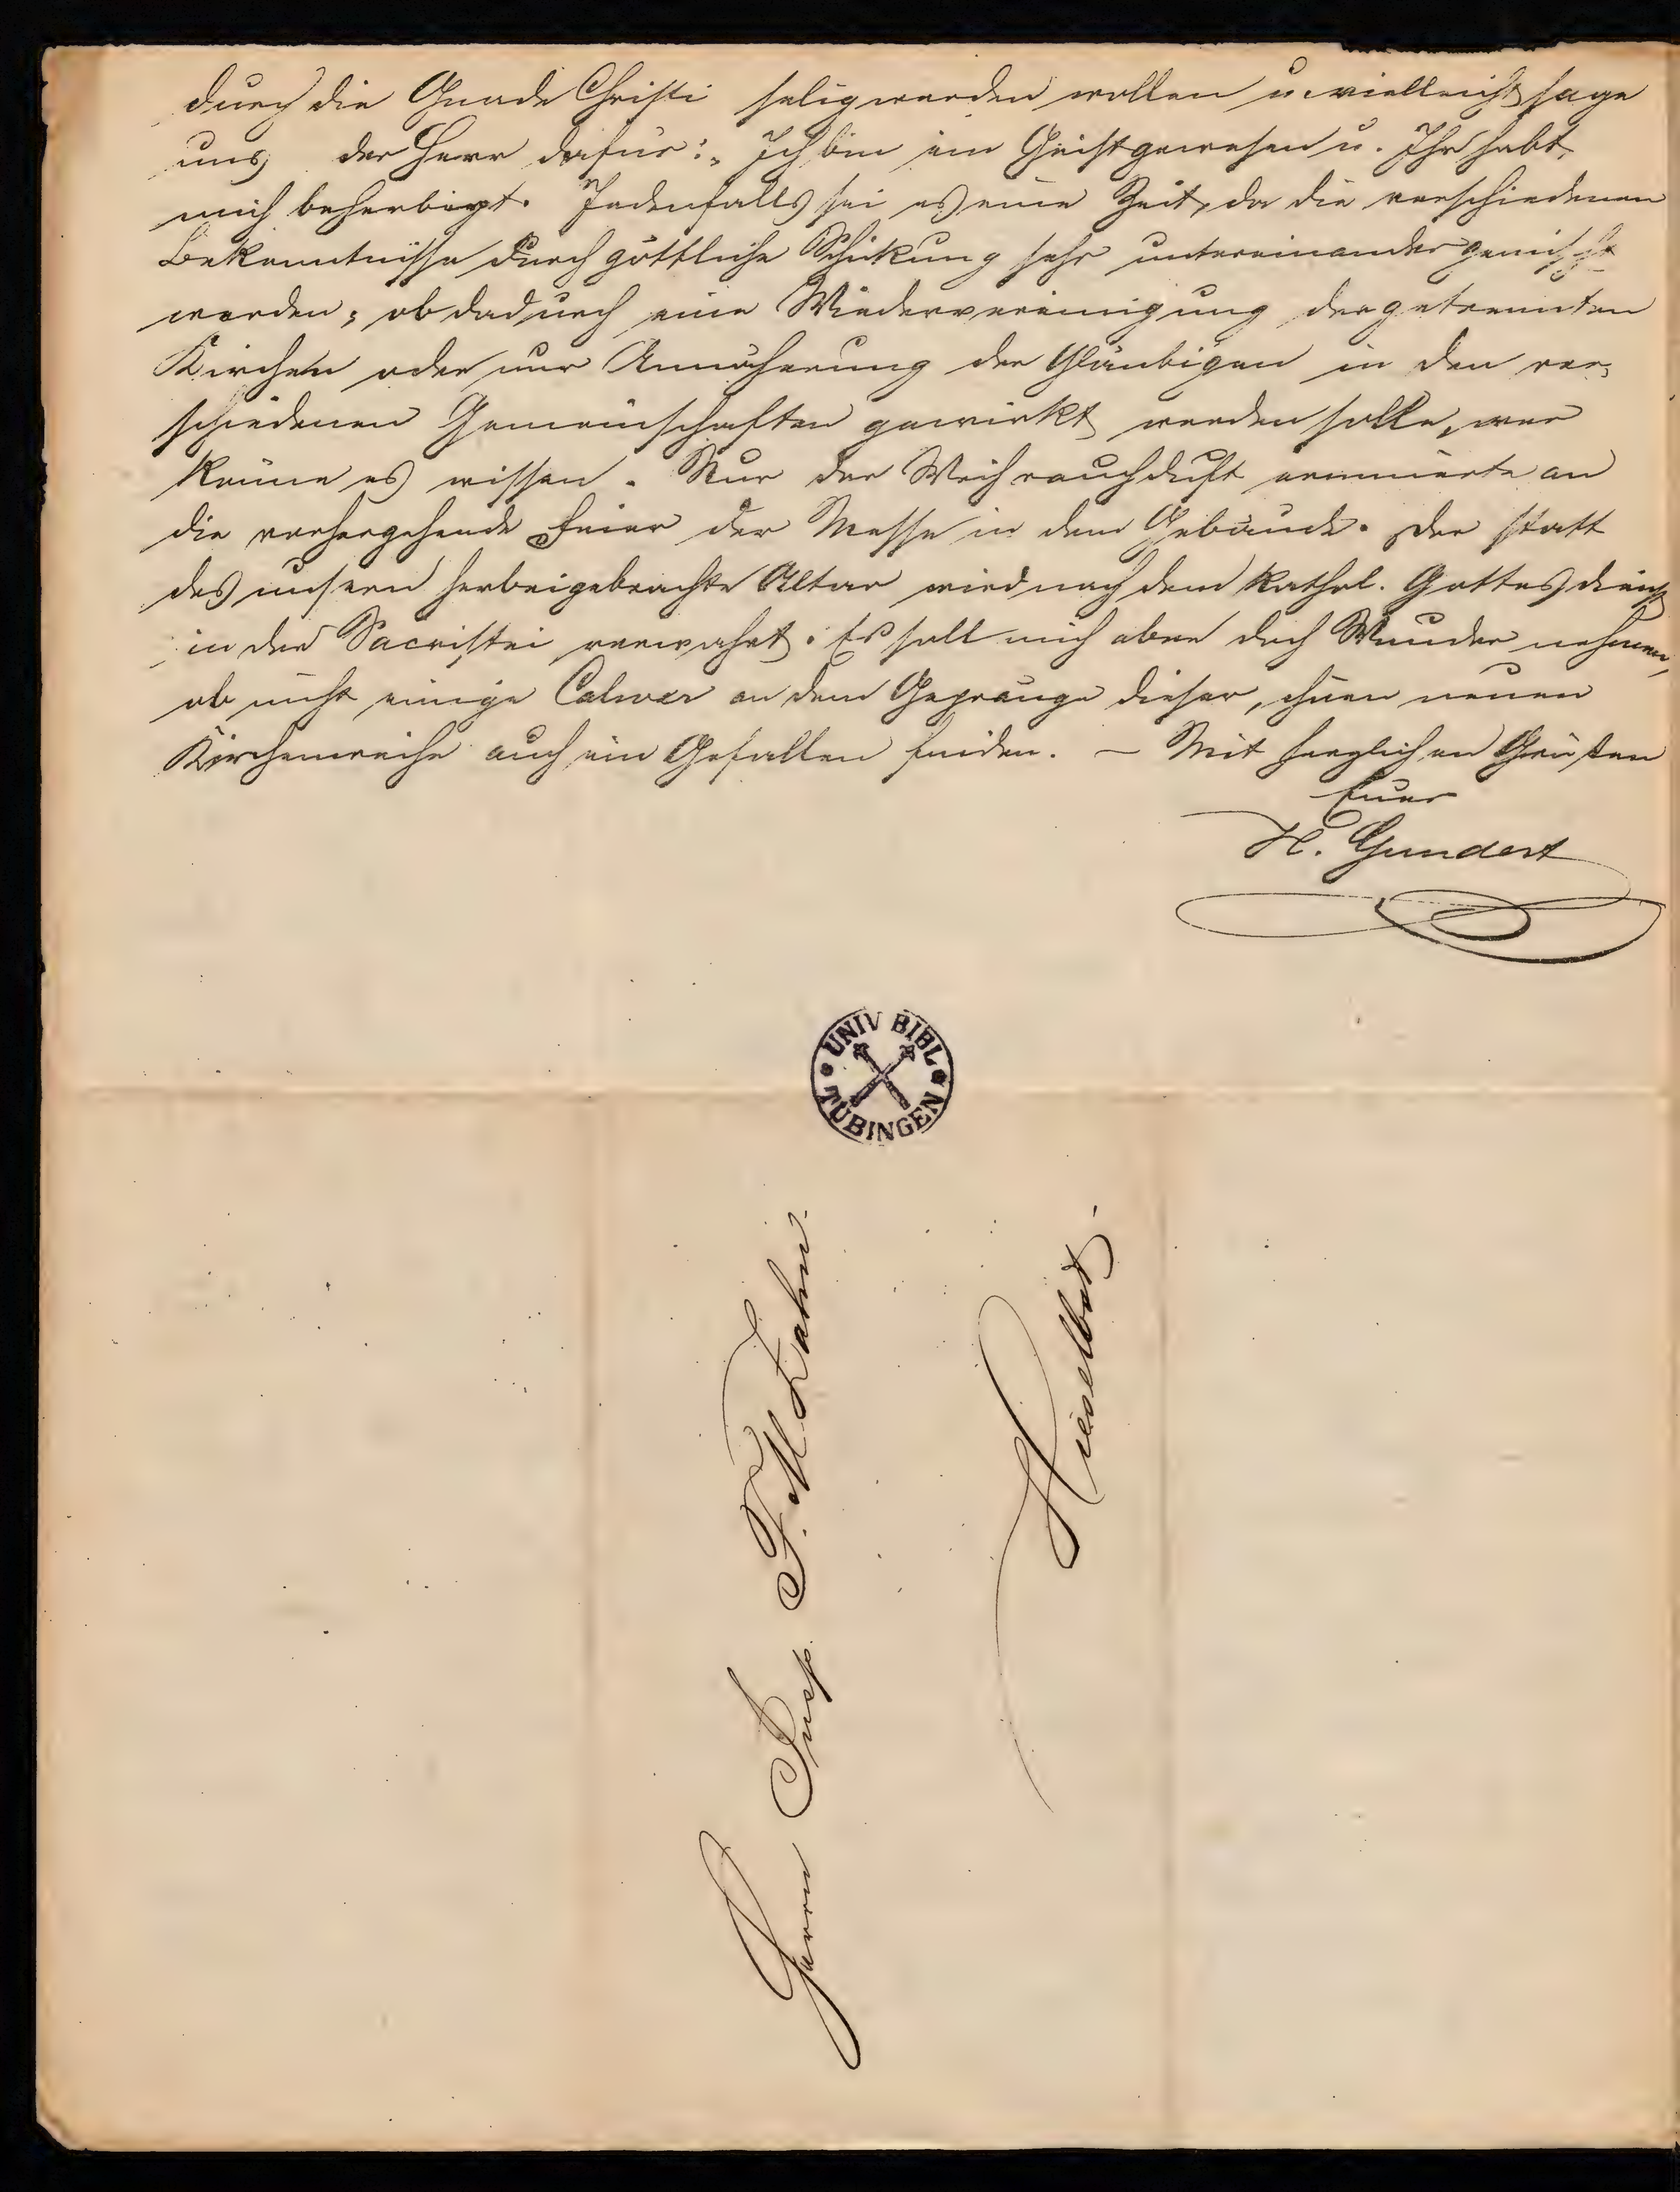 durch die Gnade Christi selig werden wollen u. vielleicht sage
uns der Herr dafür: „Ich bin ein Gast gewesen u. Ihr habt
mich beherbigt. Jedenfalls sei es eine Zeit, da die verschiedenen
Bekenntnisse durch göttliche Schickung sehr untereinander gemischt
werden; ob dadurch eine Wiedervereinigung der getrennten
Kirchen oder nur Annäherung der Gläubigen in den ver-
schiedenen Gemeinschaften gewirkt werden solle, wer
könne es wissen. Nur der Weihrauchduft erinnerte an
die vorhergehende Feier der Messe in dem Gebäude. Der statt
des unsern herbeigebrachte Altar wird nach dem kathol. Gottesdienst
in der Sacristei verwahrt. Es soll mich aber doch Wunder nehmen,
ob nicht einige Calwer an dem Gepränge dieser, ihnen neuen
Kirchenweihe auch ein Gefallen finden. – Mit herzlichen Grüßen
Euer
H. Gundert
UNIV BIBL
TÜBINGEN
Herrn Insp. F. M. Zahn.